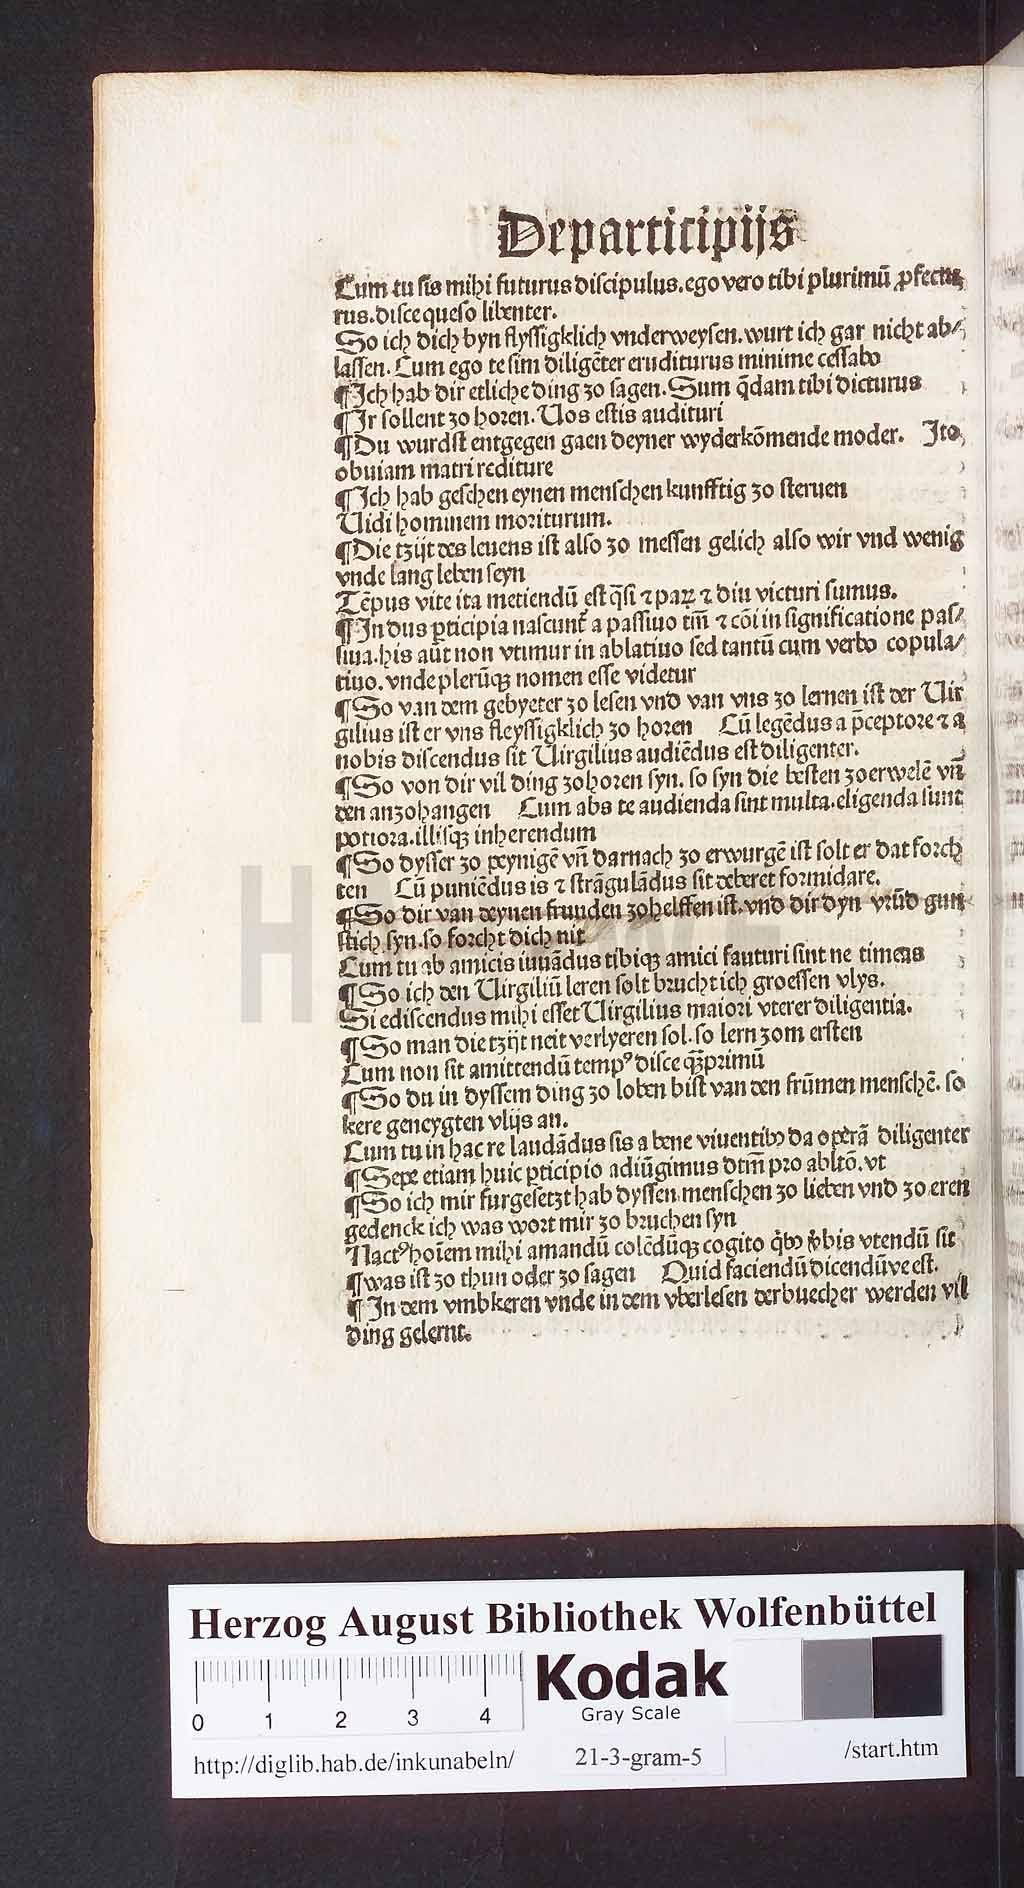 De participijs
Cum tu sis mihi futurus discipulus. ego vero tibi plurimū ꝓfectu
rus. disce queso libenter.
So ich dich byn flyssigklich vnderweysen. wurt ich gar nicht ab⸗
lassen. Cum ego te sim diligēter eruditurus minime cessabo
¶Ich hab dir etliche ding zo sagen. Sum q̄dam tibi dicturus
¶Ir sollent zo horen. Uos estis audituri
¶Du wurdst entgegen gaen deyner wyderkōmende moder. Ito
obuiam matri rediture
¶Ich hab gesehen eynen menschen kunfftig zo steruen
Uidi hominem moriturum.
¶Die tzijt des leuens ist also zo messen gelich also wir vnd wenig
vnde lang leben seyn
Tēpus vite ita metiendū est q̄si ⁊ paꝝ ⁊ diu victuri sumus.
¶In dus ꝑticipia nascunt᷑ a passiuo tm̄ ⁊ cōi in significatione pas⸗
siua. his aūt non vtimur in ablatiuo sed tantū cum verbo copula⸗
tiuo. vnde plerūqꝫ nomen esse videtur
¶So van dem gebyeter zo lesen vnd van vns zo lernen ist der Uir
gilius ist er vns fleyssigklich zo horen Cū legēdus a p̄ceptore ⁊ a
nobis discendus sit Uirgilius audiēdus est diligenter.
¶So von dir vil ding zohoren syn. so syn die besten zoerwelē vn̄
den anzohangen Cum abs te audienda sint multa. eligenda sunt
potiora. illisqꝫ inherendum
¶So dysser zo peynigē vn̄ darnach zo erwurgē ist solt er dat forch
ten Cū puniēdus is ⁊ strāgulādus sit deberet formidare.
¶So dir van deynen frunden zohelffen ist. vnd dir dyn vrūd gun
stich syn. so forcht dich nit
Cum tu ab amicis iuuādus tibiqꝫ amici fauturi sint ne timeas
¶So ich den Uirgiliū leren solt brucht ich groessen vlys.
Si ediscendus mihi esset Uirgilius maiori vterer diligentia.
¶So man die tzijt neit verlyeren sol. so lern zom ersten
Cum non sit amittendū tempꝰ disce qꝫprimū
¶So du in dyssem ding zo loben bist van den frūmen menschē. so
kere geneygten vlijs an.
Cum tu in hac re laudādus sis a bene viuentibꝫ da operā diligenter
¶Sepe etiam huic ꝑticipio adiūgimus dtm̄ pro abltō. vt
¶So ich mir furgesetzt hab dyssen menschen zo lieben vnd zo eren
gedenck ich was wort mir zo bruchen syn
Nactꝰ hoīem mihi amandū colēdūqꝫ cogito qͥbꝫ v̾bis vtendū sit
¶was ist zo thun oder zo sagen Quid faciendū dicendūve est.
¶In dem vmbkeren vnde in dem vberlesen der buecher werden vil
ding gelernt.
Herzog August Bibliothek Wolfenbüttel
0 1 2 3 4
Kodak
Gray Scale
http://diglib.hab.de/inkunabeln/ 21-3-gram-5 /start.htm